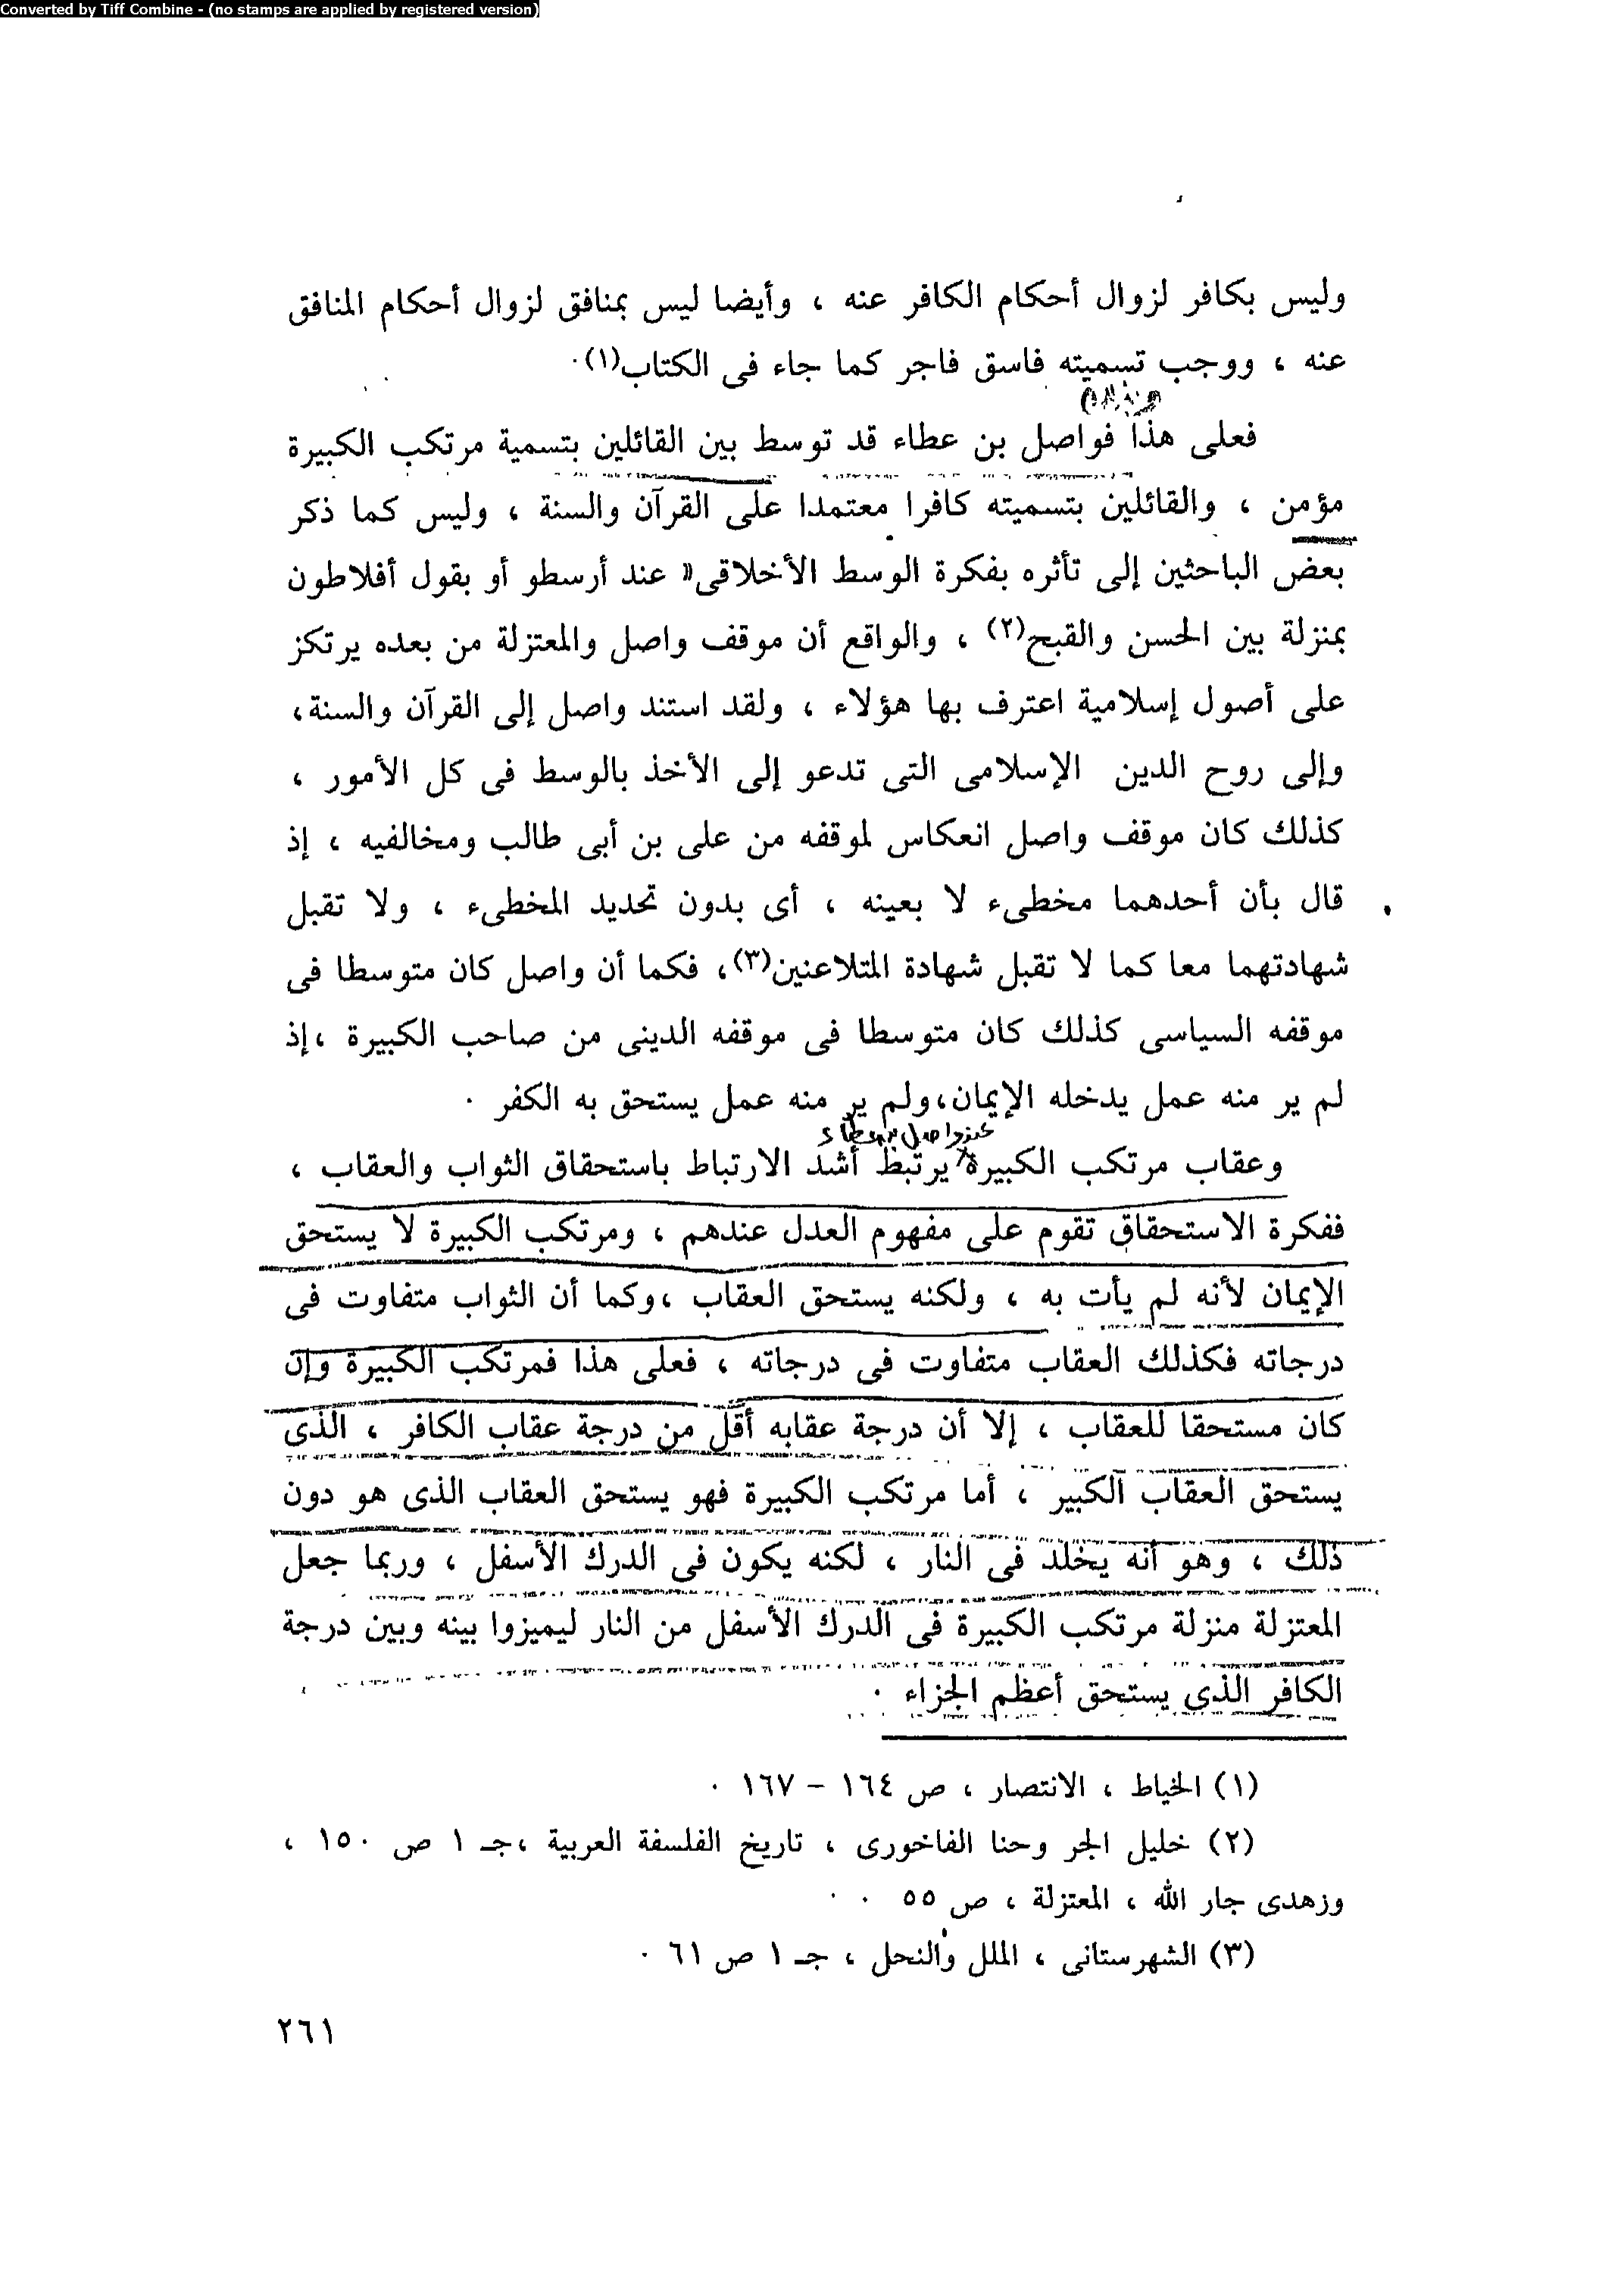 Converted by Tiff Combine - (no stamps are applied by registered version)
وليس بكافر لزوال أحكام الكافر عنه ، وأيضا ليس بمنافق لزوال أحكام المنافق
عنه ، ووجب تسميته فاسق فاجر كما جاء فى الكتاب(١)٠
فعلى هذا فواصل بن عطاء قد توسط بين القائلين بتسمية مرتكب الكبيرة
مؤمن ، والقائلين بتسميته كافرا معتمدا على القرآن والسنة ، وليس كما ذكر
بعض الباحثين إلى تأثره بفكرة الوسط الأخلاقى« عند أرسطو أو بقول أفلاطون
بمنزلة بين الحسن والقبح(٢) ، والواقع أن موقف واصل والمعتزلة من بعده يرتكز
على أصول إسلامية اعترف بها هؤلاء ، ولقد استند واصل إلى القرآن والسنة،
وإلى روح الدين الإسلامى التى تدعو إلى الأخذ بالوسط فى كل الأمور ،
كذلك كان موقف واصل انعكاس لموقفه من على بن أبى طالب ومخالفيه ، إذ
قال بأن أحدهما مخطىء لا بعينه ، أى بدون تحديد المخطىء ، ولا تقبل
شهادتهما معا كما لا تقبل شهادة المتلاعنين(٣)، فكما أن واصل كان متوسطا فى
موقفه السياسى كذلك كان متوسطا فى موقفه الدينى من صاحب الكبيرة ،إذ
لم ير منه عمل يدخله الإيمان،ولم ير منه عمل يستحق به الكفر ٠
عند واصل بن عطاء
وعقاب مرتكب الكبيرة يرتبط أشد الارتباط باستحقاق الثواب والعقاب ،
ففكرة الاستحقاق تقوم على مفهوم العدل عندهم ، ومرتكب الكبيرة لا يستحق
الإيمان لأنه لم يأت به ، ولكنه يستحق العقاب ،وكما أن الثواب متفاوت فى
درجاته فكذلك العقاب متفاوت فى درجاته ، فعلى هذا فمرتكب الكبيرة وإن
كان مستحقا للعقاب ، إلا أن درجة عقابه أقل من درجة عقاب الكافر ، الذى
يستحق العقاب الكبير ، أما مرتكب الكبيرة فهو يستحق العقاب الذى هو دون
ذلك ، وهو أنه يخلد فى النار ، لكنه يكون فى الدرك الأسفل ، وربما جعل
المعتزلة منزلة مرتكب الكبيرة فى الدرك الأسفل من النار ليميزوا بينه وبين درجة
الكافر الذى يستحق أعظم الجزاء ٠
(١) الخياط ، الانتصار ، ص ١٦٤ – ١٦٧ ٠
(٢) خليل الجر وحنا الفاخورى ، تاريخ الفلسفة العربية ،جـ ١ ص ١٥٠ ،
وزهدى جار الله ، المعتزلة ، ص ٥٥ ٠ ٠
(٣) الشهرستانى ، الملل والنحل ، جـ ١ ص ٦١ ٠
٢٦١